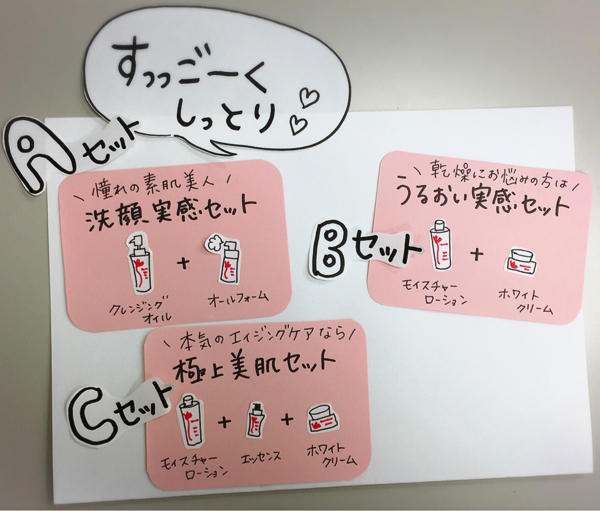 すっっごーく
しっとり♡♡
Aセット
憧れの素肌美人
洗顔実感セット
+
クレンジング
オイル
オールフォーム
Bセット
乾燥にお悩みの方は
うるおい実感セット
+
モイスチャー
ローション
ホワイト
クリーム
Cセット
本気のエイジングケアなら
極上美肌セット
+ +
モイスチャー
ローション
エッセンス
ホワイト
クリーム